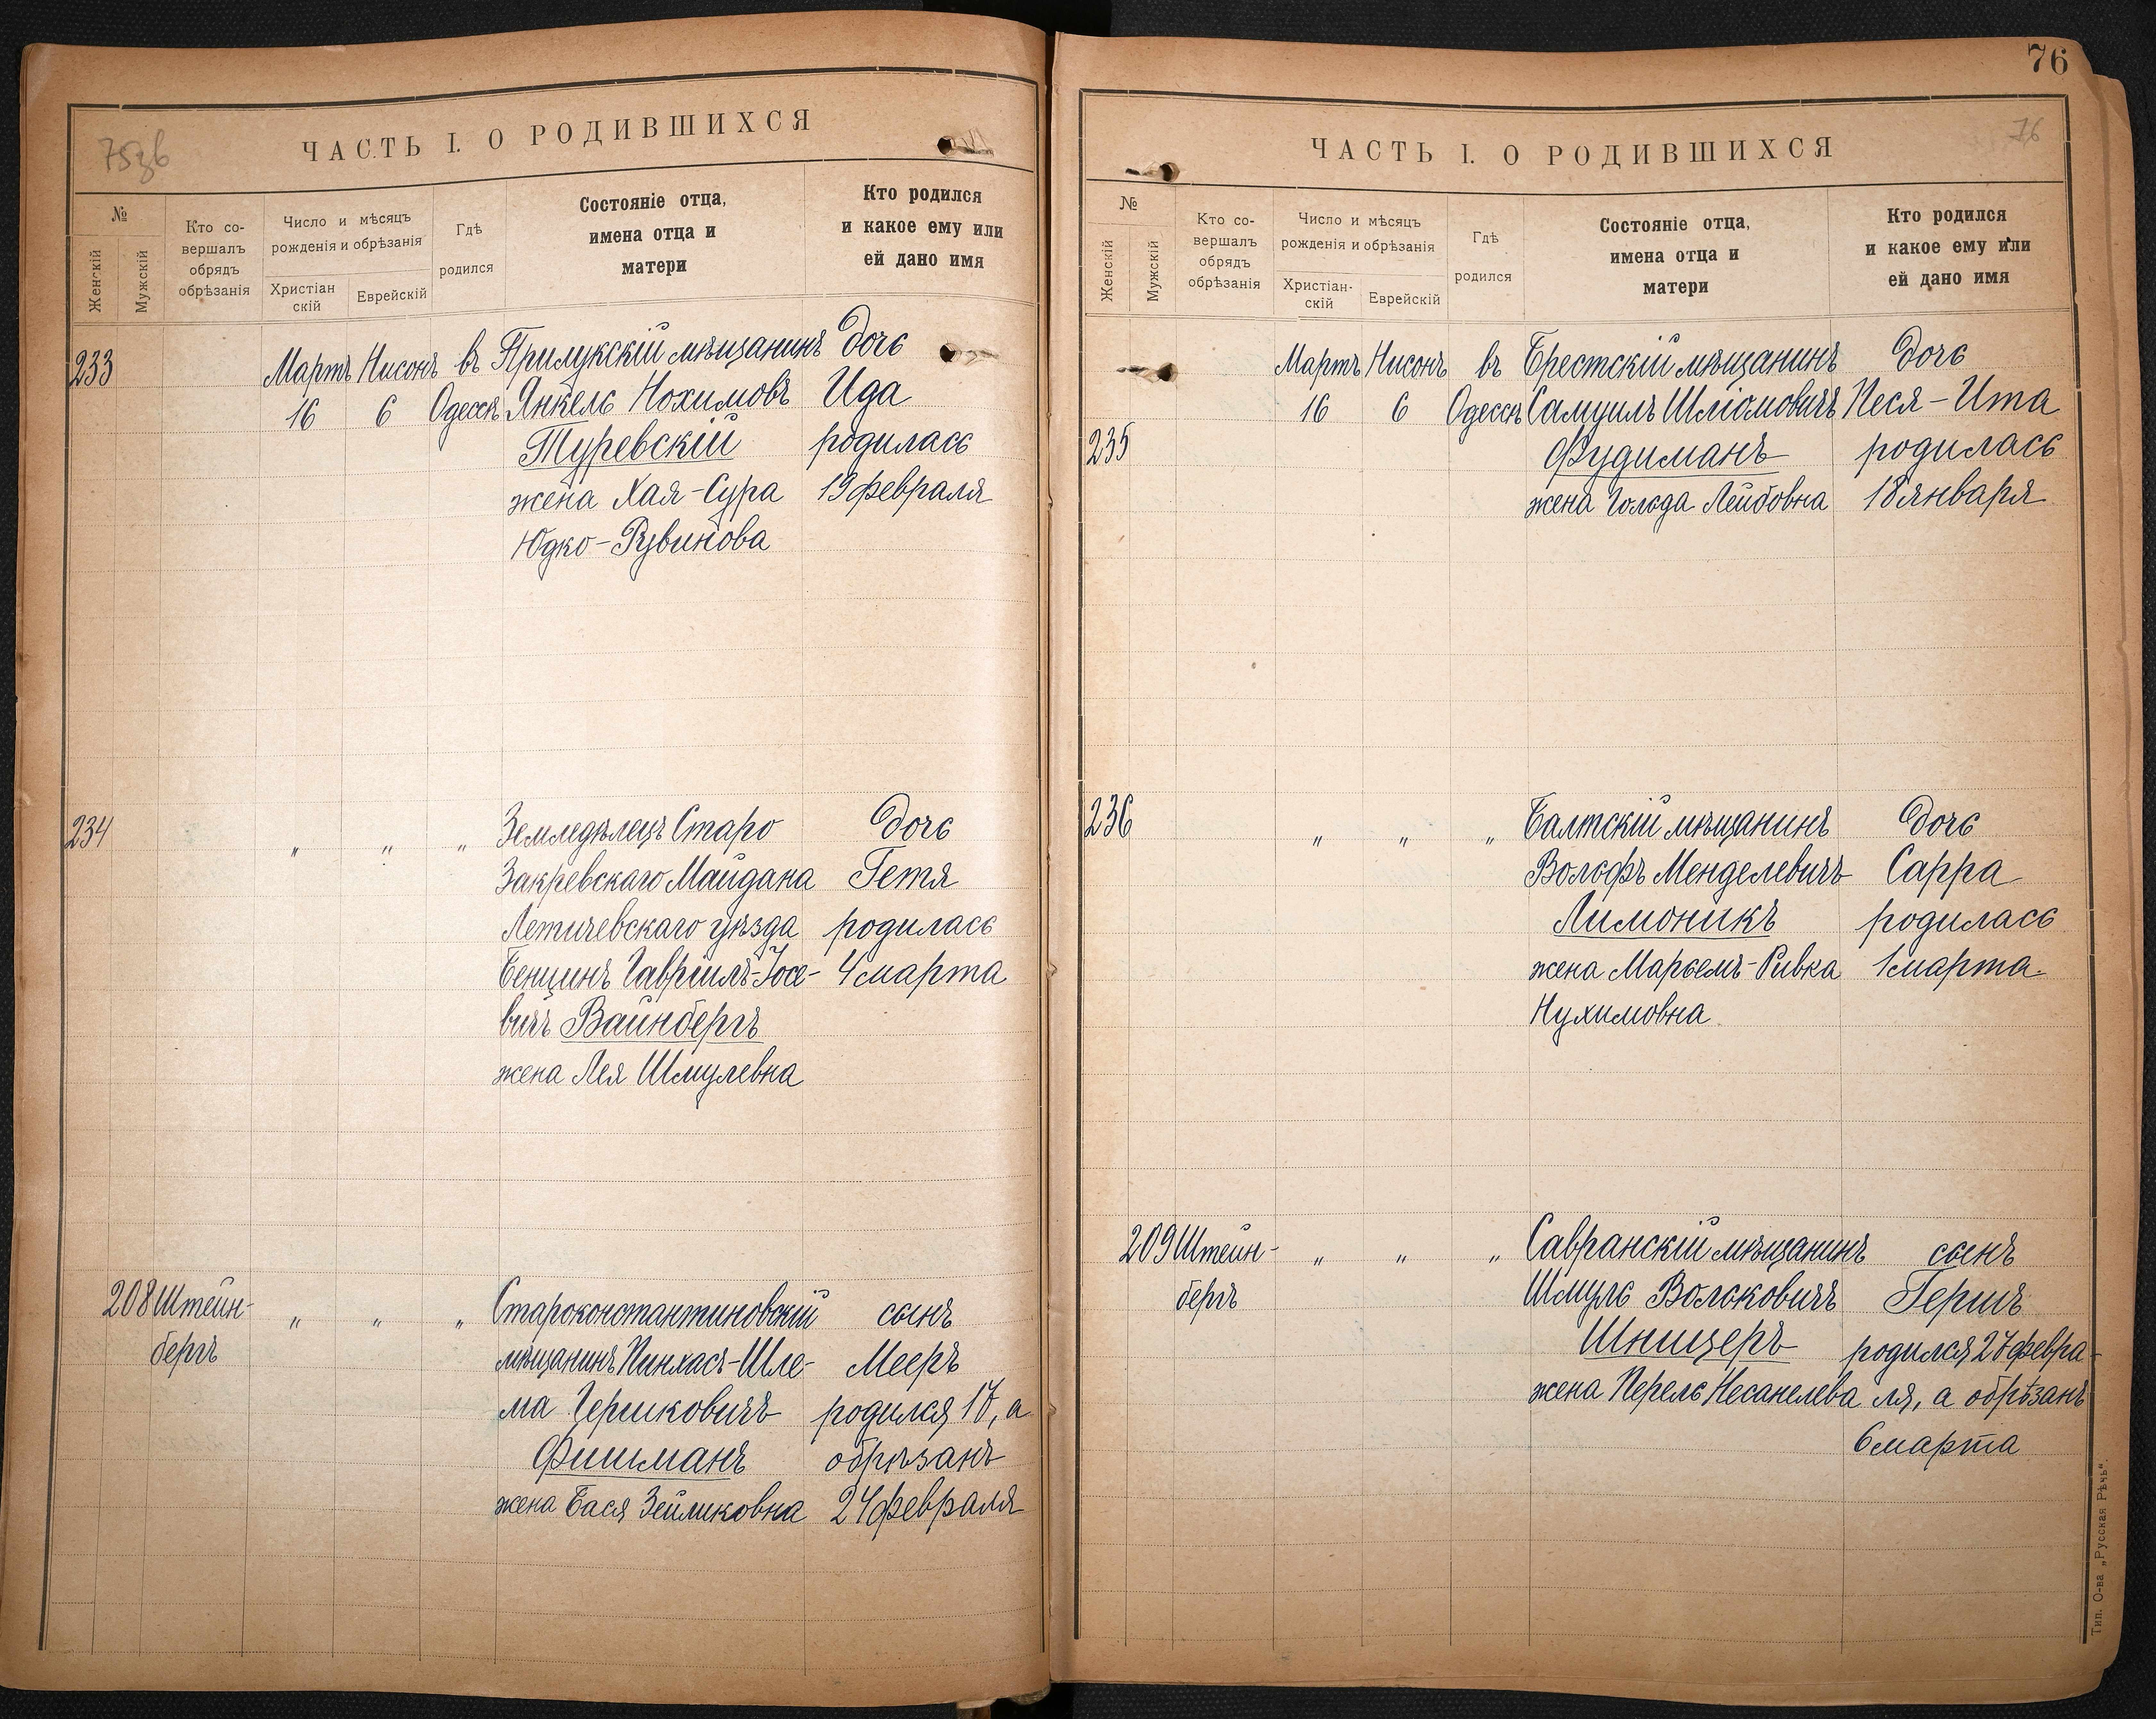 75зв
ЧАСТЬ I. О РОДИВШИХСЯ
№
Женскій
Мужскій
Кто со-
вершалъ
обрядъ
обрѣзанія
Число и мѣсяцъ
рожденія и обрѣзанія
Христіан
скій
Еврейскій
Гдѣ
родился
Состояніе отца,
имена отца и
матери
Кто родился
и какое ему или
ей дано имя
233 Мартъ Нисонъ въ Прилукскій мѣщанинъ Дочь
16 6 Одессѣ Янкель Нохимовъ Ида
Туревскій родилась
жена Хая-Сура 19 февраля
Юдко-Рувинова
234 " " " Земледѣлецъ Старо Дочь
Закревскаго Майдана Гетя
Летичевскаго уѣзда родилась
Бенцинъ Гавріилъ-Іосе- 4 марта
вичъ Вайнбергъ
жена Лея Шмулевна
208 Штейн- " " " Староконстантиновскій сынъ
бергъ мѣщанинъ Пинхасъ-Шле- Мееръ
ма Гершковичъ родился 17, а
Фишманъ обрѣзанъ
жена Бася Зейликовна 24 февраля
76
76
ЧАСТЬ I. О РОДИВШИХСЯ
№
Женскій
Мужскій
Кто со-
вершалъ
обрядъ
обрѣзанія
Число и мѣсяцъ
рожденія и обрѣзанія
Христіан-
скій
Еврейскій
Гдѣ
родился
Состояніе отца,
имена отца и
матери
Кто родился
и какое ему или
ей дано имя
Мартъ Нисонъ въ Брестскій мѣщанинъ Дочь
16 6 Одессѣ Самуилъ Шліомовичъ Песя-Ита
235 Фудиманъ родилась
жена Гольда Лейбовна 18 января
236 " " " Балтскій мѣщанинъ Дочь
Вольфъ Менделевичъ Сарра
Лимоникъ родилась
жена Марьемъ-Ривка 1 марта.
Нухимовна
209 Штейн- " " " Савранскій мѣщанинъ сынъ
бергъ Шмуль Вольковичъ Гершъ
Шницеръ родился 27 февра-
жена Перель Несанелева ля, а обрѣзанъ
6 марта
Тип. О-ва „Русская Рѣчь".